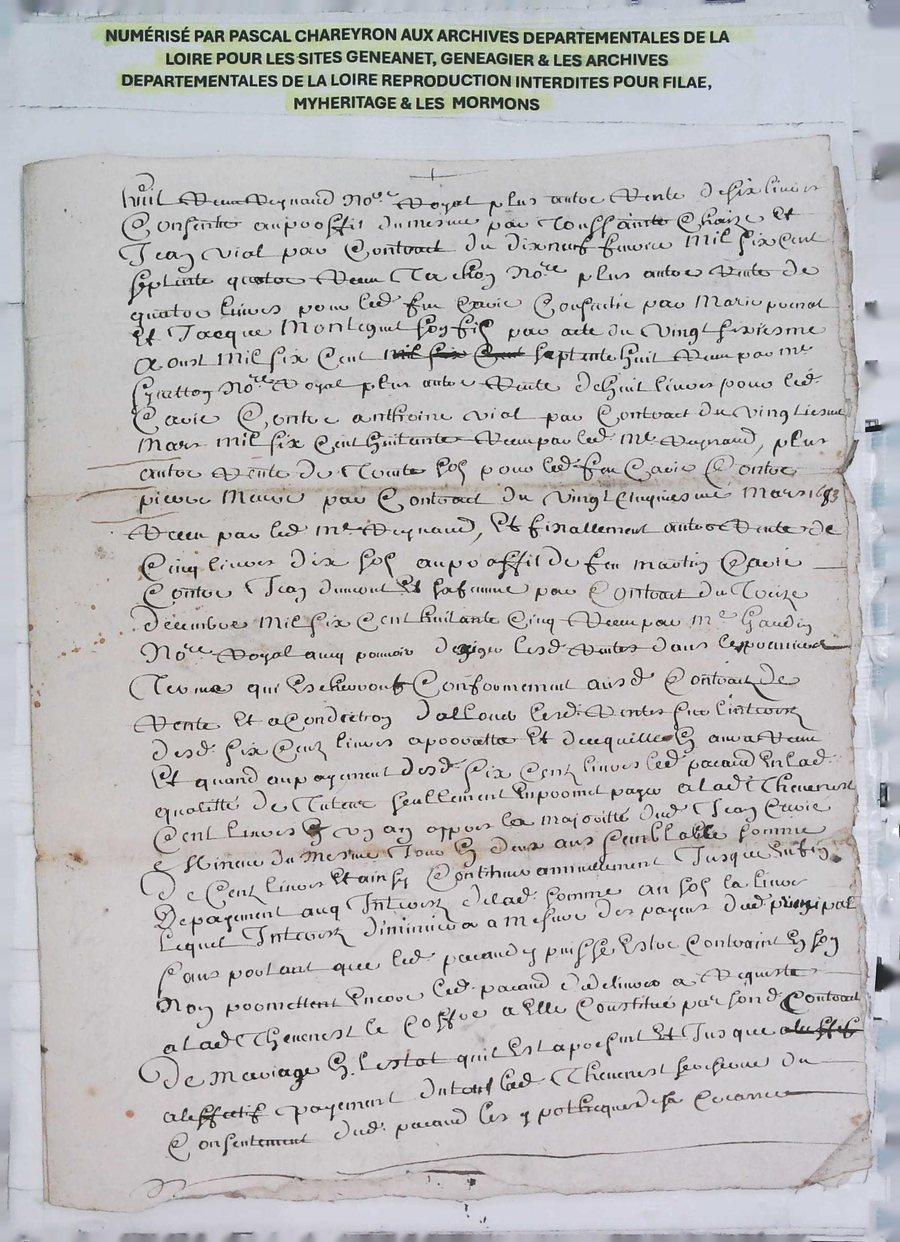 NUMÉRISÉ PAR PASCAL CHAREYRON AUX ARCHIVES DEPARTEMENTALES DE LA
LOIRE POUR LES SITES GENEANET, GENEAGIER & LES ARCHIVES
DEPARTEMENTALES DE LA LOIRE REPRODUCTION INTERDITES POUR FILAE,
MYHERITAGE & LES MORMONS
huit Receu Reynaud Nore Royal plus autre Rente de six livres
Consentie au proffit du mesme par Toussaint Et
Jean vial par Contract du dixneuf fevrier mil six cent
septante quatre Receu Tachon Nore plus autre Rente de
quatre livres pour led feu Cavie Consentie par Marie
Et Jacque fils par acte du vingt sixiesme
aoust mil six Cent septante huit Receu par me
Nore Royal plus autre Rente de huit livres pour led
Cavie Contre anthoine vial par Contract du vingtiesme
Mars mil six Cent huitante Receu par led Me Reynaud, plus
autre Rente de Trente sols pour led feu Cavie Contre
pierre par Contract du vingt cinquiesme Mars 1683
Receu par led Me Reynaud, Et finallement autre Rente de
Cinq livres dix sols au proffit de feu martin Cavie
Contre Jean dumont Et sa femme par Contract du Treize
décembre mil six Cent huitante Cinq Receu par Me Gaudin
Nore Royal avec pouvoir d'exiger lesd Rentes dans le premier
Terme qui Conformement ausd Contract de
Rente Et a Condition d'allouer lesd Rentes sur l'interest
desd six Centz livres a Et de ce quil En aura Receu
Et quand au payement desd six Centz livres led En lad
quallitté de Tuteur seullement En promet payer a lad Thevenest
Cent livres En un an appres la majoritté dud Jean Cavie
du mesme Jour En deux ans semblable somme
De Centz livres Et ainsy Continuer annuellement Jusque Enfin
De payement avec Interest de lad somme au sol la livre
Lequel Interest diminuera a mesure des payes dud principal
sans pourtant que led puisse Estre Contraint En son
Nom promettant Encore led de delivrer a Requeste
a lad Thevenest le Coffre a Elle Constitué par sond Contract
De mariage En L'estat qu'il Est a present Et Jusque
a leffectif payement du tout lad Thevenest se reserve du
Consentement dud les